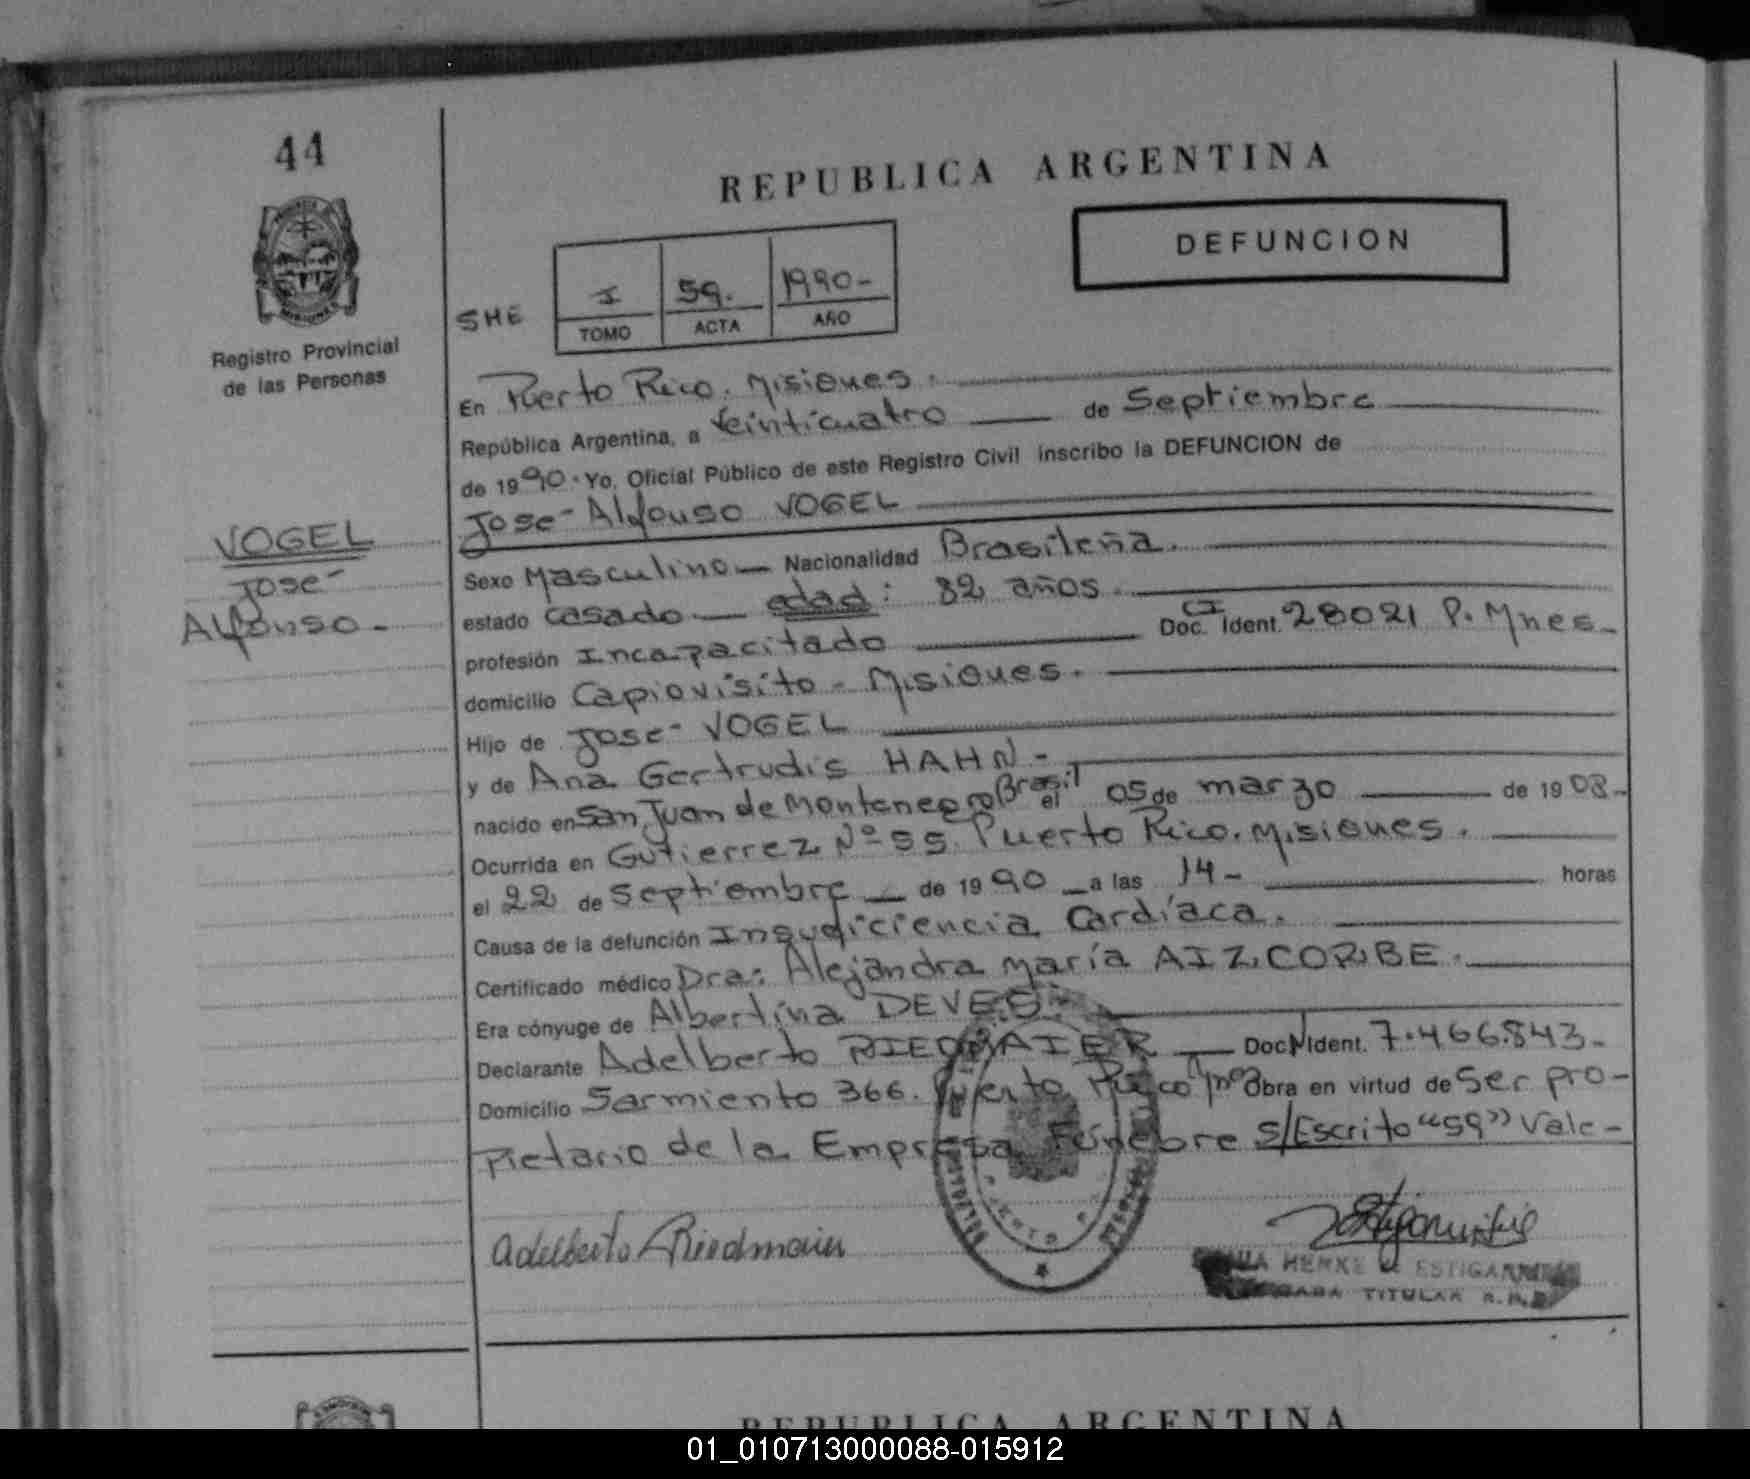 44
REPUBLICA ARGENTINA
DEFUNCION
SHE
I 59. 1990-
TOMO ACTA AÑO
Registro Provincial
de las Personas
En Puerto Rico. Misiones.
República Argentina, a veinticuatro de Septiembre
de 1990. Yo, Oficial Público de este Registro Civil inscribo la DEFUNCION de
Jose Alfonso VOGEL
VOGEL
Jose
Alfonso-
Sexo Masculino Nacionalidad Brasileña.
estado casado edad: 82 años.
profesión Incapacitado Doc. CI Ident. 28021 P. Mnes-
domicilio Capiovisito - Misiones.
Hijo de Jose VOGEL
y de Ana Gertrudis HAHN-
nacido en San Juan de Montenegro Brasil el 05 de marzo de 1908-
Ocurrida en Gutierrez Nº 59. Puerto Rico. Misiones.
el 22 de Septiembre de 1990 a las 14- horas
Causa de la defunción Insuficiencia Cardíaca.
Certificado médico Dra: Alejandra María AIZCORBE.
Era cónyuge de Albertina DEVES.
Declarante Adelberto RIEDMAIER Doc N Ident. 7.466.843-
Domicilio Sarmiento 366. Puerto Rico Mnes Obra en virtud de Ser pro-
pietario de la Empresa Fúnebre S/Escrito "59" Vale-
Adelberto Riedmaier
HENKE de ESTIGARRIBIA
TITULAR R.P.
REPUBLICA ARGENTINA
01_010713000088-015912